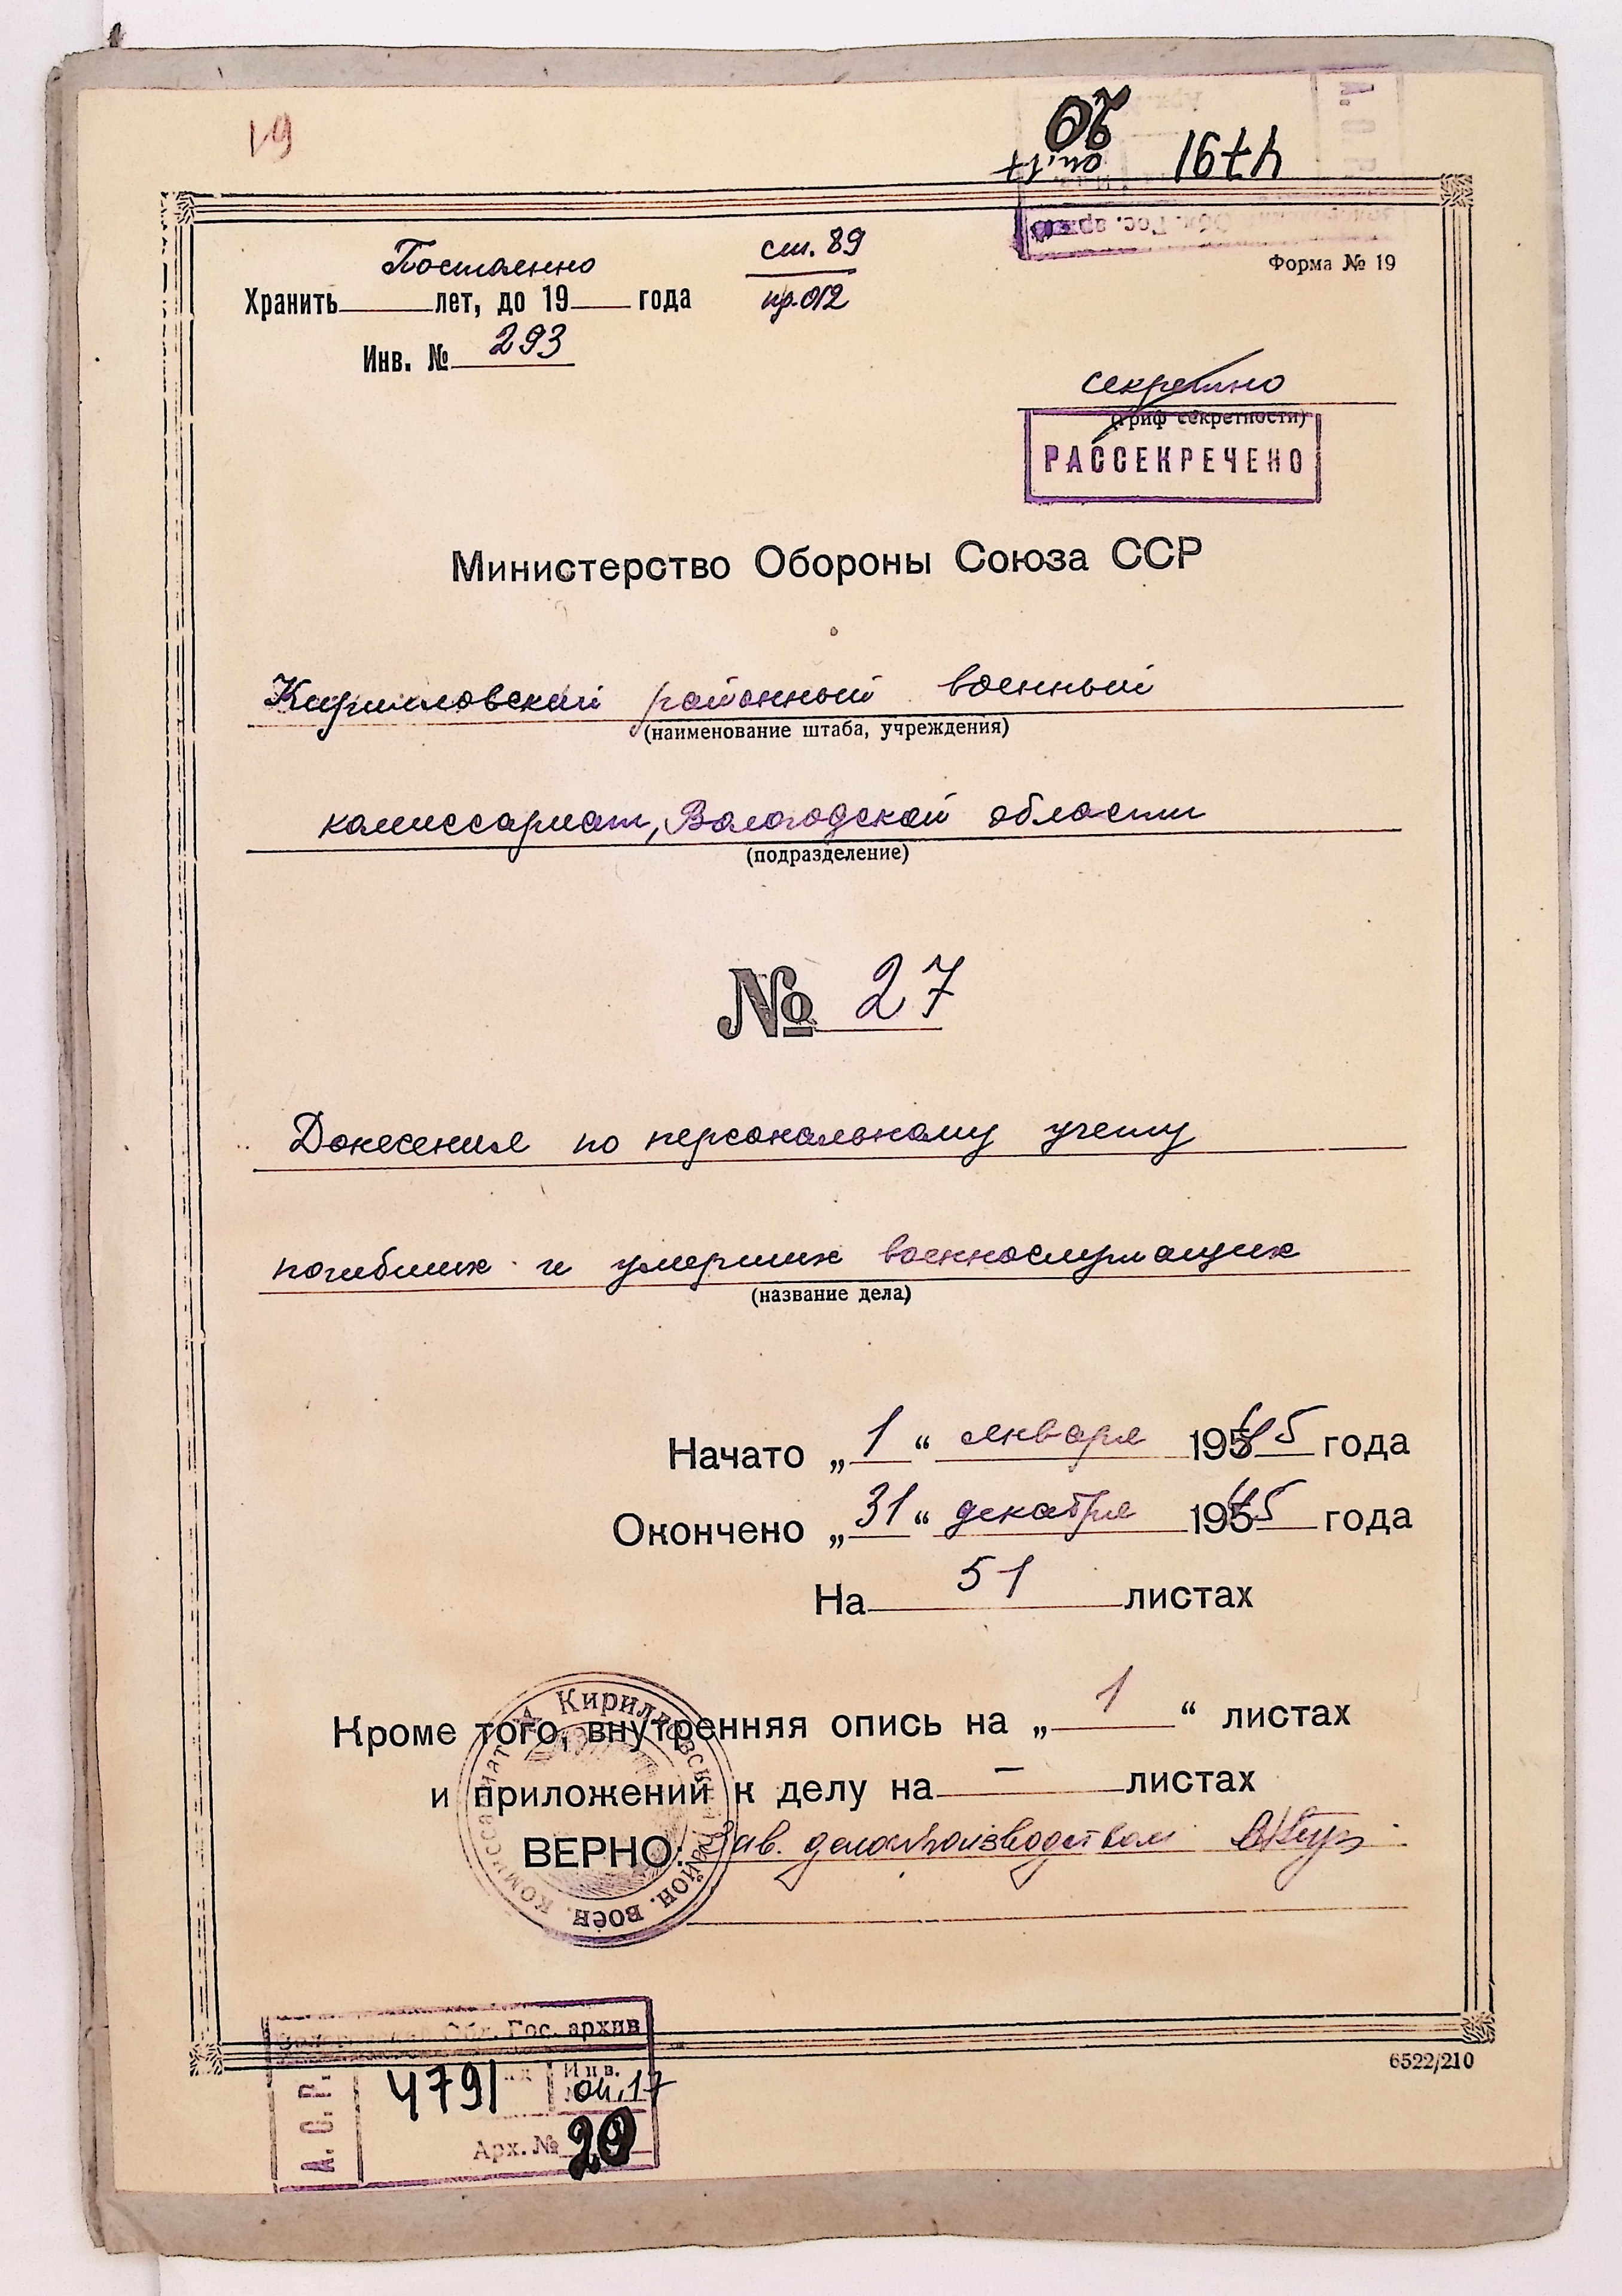 19
20
оп.17 4791
Постоянно ст. 89
Хранить лет, до 19 года пр.012
Форма № 19
Инв. № 293
секретно
(гриф секретности)
РАССЕКРЕЧЕНО
Министерство Обороны Союза ССР
Кирилловский районный военный
(наименование штаба, учреждения)
комиссариат, Вологодской области
(подразделение)
№ 27
Донесения по персональному учету
погибших и умерших военнослужащих
(название дела)
Начато „1“ января 1945 года
Окончено „31“ декабря 1945 года
На 51 листах
Кроме того, внутренняя опись на „1“ листах
и приложений к делу на – листах
ВЕРНО: Зав. делопроизводством
Кирилловский район. воен. комиссариат
Вологодский Обл. Гос. архив
А. О. Р.
4791 Инв. оп.17
Арх. № 20
6522/210